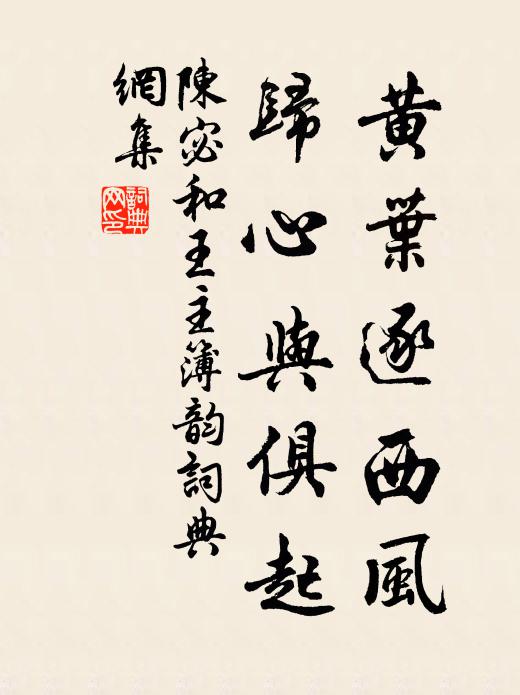 黃葉逐西風
歸心與俱起
陳宓和王主簿韵詞典
網集
詞典
网印